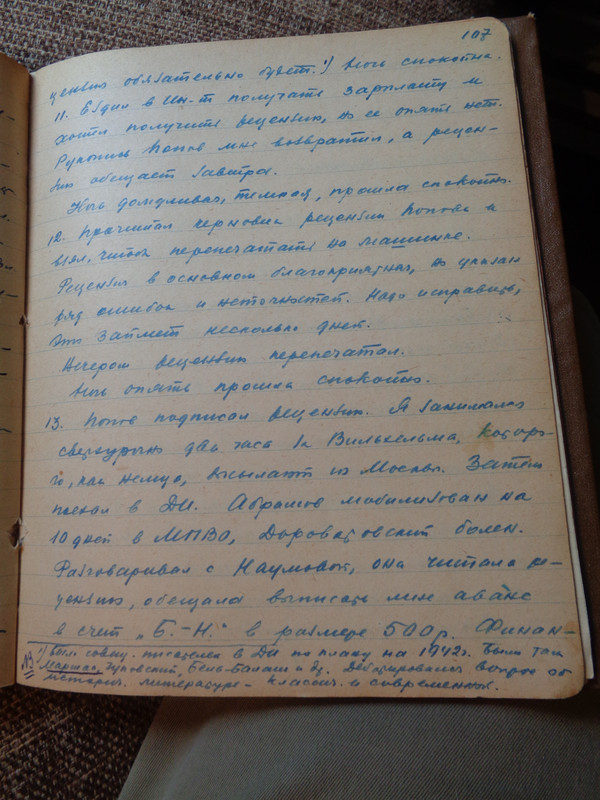 107
цензия обязательно будет.¹) Ночь спокойна.
11. Ездил в Ин-т получать зарплату и
хотел получить рецензию, но ее опять нет.
Рукопись Попов мне возвратил, а рецен-
зию обещает завтра.
Ночь дождливая, темная, прошла спокойно.
12. Прочитал черновик рецензии Попова и
взял, чтобы перепечатать на машинке.
Рецензия в основном благоприятная, но указан
ряд ошибок и неточностей. Надо исправить,
это займет несколько дней.
Вечером рецензию перепечатал.
Ночь опять прошла спокойно.
13. Попов подписал рецензию. Я занимался
сверхурочно два часа за Вилькельма, которо-
го, как немца, высылают из Москвы. Затем
поехал в ДИ. Абрамов мобилизован на
10 дней в МПВО, Дороватовский болен.
Разговаривал с Наумовой, она читала ре-
цензию, обещала выписать мне аванс
в счет „Б.-Н." в размере 500 р. Финан-
№3 ¹) Было совещ. писателей в ДИ по плану на 1942 г. Были там
Маршак, Бела-Балаш и др. Дебатировался вопрос об
историч. литературе - классич. и современной.